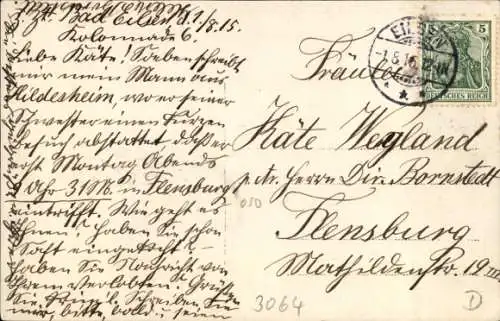 z. Zt. Bad Eilsen d. 1/8. 15.
Kolonnade 6.
Liebe Käte! Soeben schreibt
mir mein Mann aus
Hildesheim, wo er seiner
Schwester einen kurzen
Besuch abstattet, daß er
erst Montag Abends
9 Uhr 31 M. in Flensburg
eintrifft. Wie geht es
Ihnen u. haben Sie schon
Saft eingekocht? –
Haben Sie Nachricht von
Ihrem Verlobten? Grüßen
Sie Schreiben Sie
mir, bitte, bald u. seien
EILSEN
5
DEUTSCHES REICH
Fräulein
Käte Weyland
p. Adr. Herrn Dir. Bornstedt
Flensburg
Mathildenstr. 19
010
3064
D